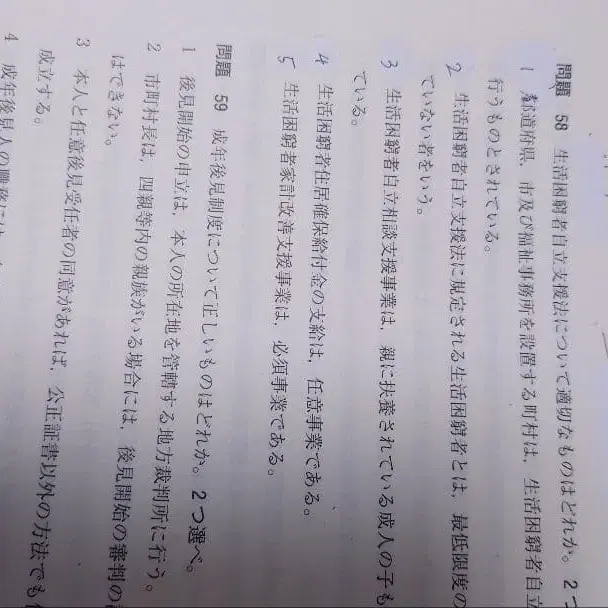 問題 58 生活困窮者自立支援法について適切なものはどれか。2つ
1 都道府県、市及び福祉事務所を設置する町村は、生活困窮者自立
行うものとされている。
2 生活困窮者自立支援法に規定される生活困窮者とは、最低限度の
ていない者をいう。
3 生活困窮者自立相談支援事業は、親に扶養されている成人の子も
ている。
4 生活困窮者住居確保給付金の支給は、任意事業である。
5 生活困窮者家計改善支援事業は、必須事業である。
問題 59 成年後見制度について正しいものはどれか。2つ選べ。
1 後見開始の申立は、本人の所在地を管轄する地方裁判所に行う。
2 市町村長は、四親等内の親族がいる場合には、後見開始の審判の
はできない。
3 本人と任意後見受任者の同意があれば、公正証書以外の方法でも
成立する。
4 成年後見人の職務には